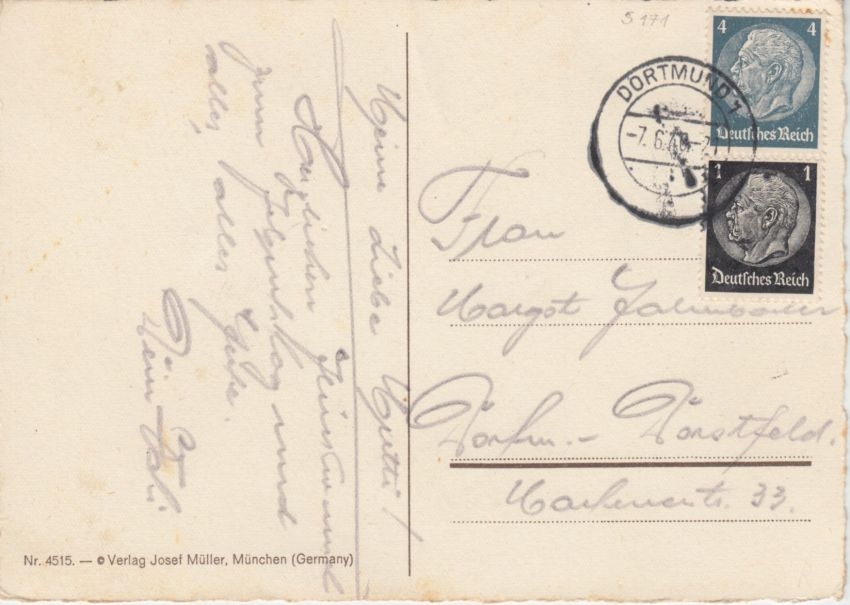 S 171
4 4
Deutsches Reich
DORTMUND 1
-7.6.40-
1 1
Deutsches Reich
Frau
Margot
Dortm.- Dorstfeld.
str. 33.
Meine Liebe Mutti!
Herzlichen
zum Geburtstag und
alles, alles Gute.
Dein
Nr. 4515. — © Verlag Josef Müller, München (Germany)